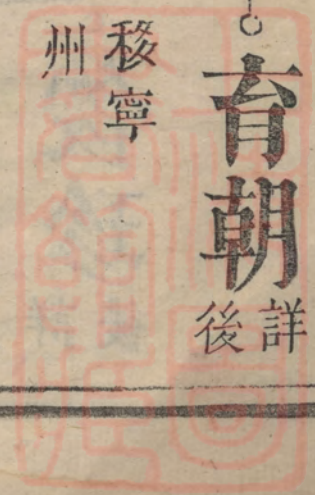 育朝
詳
後
移寧
州